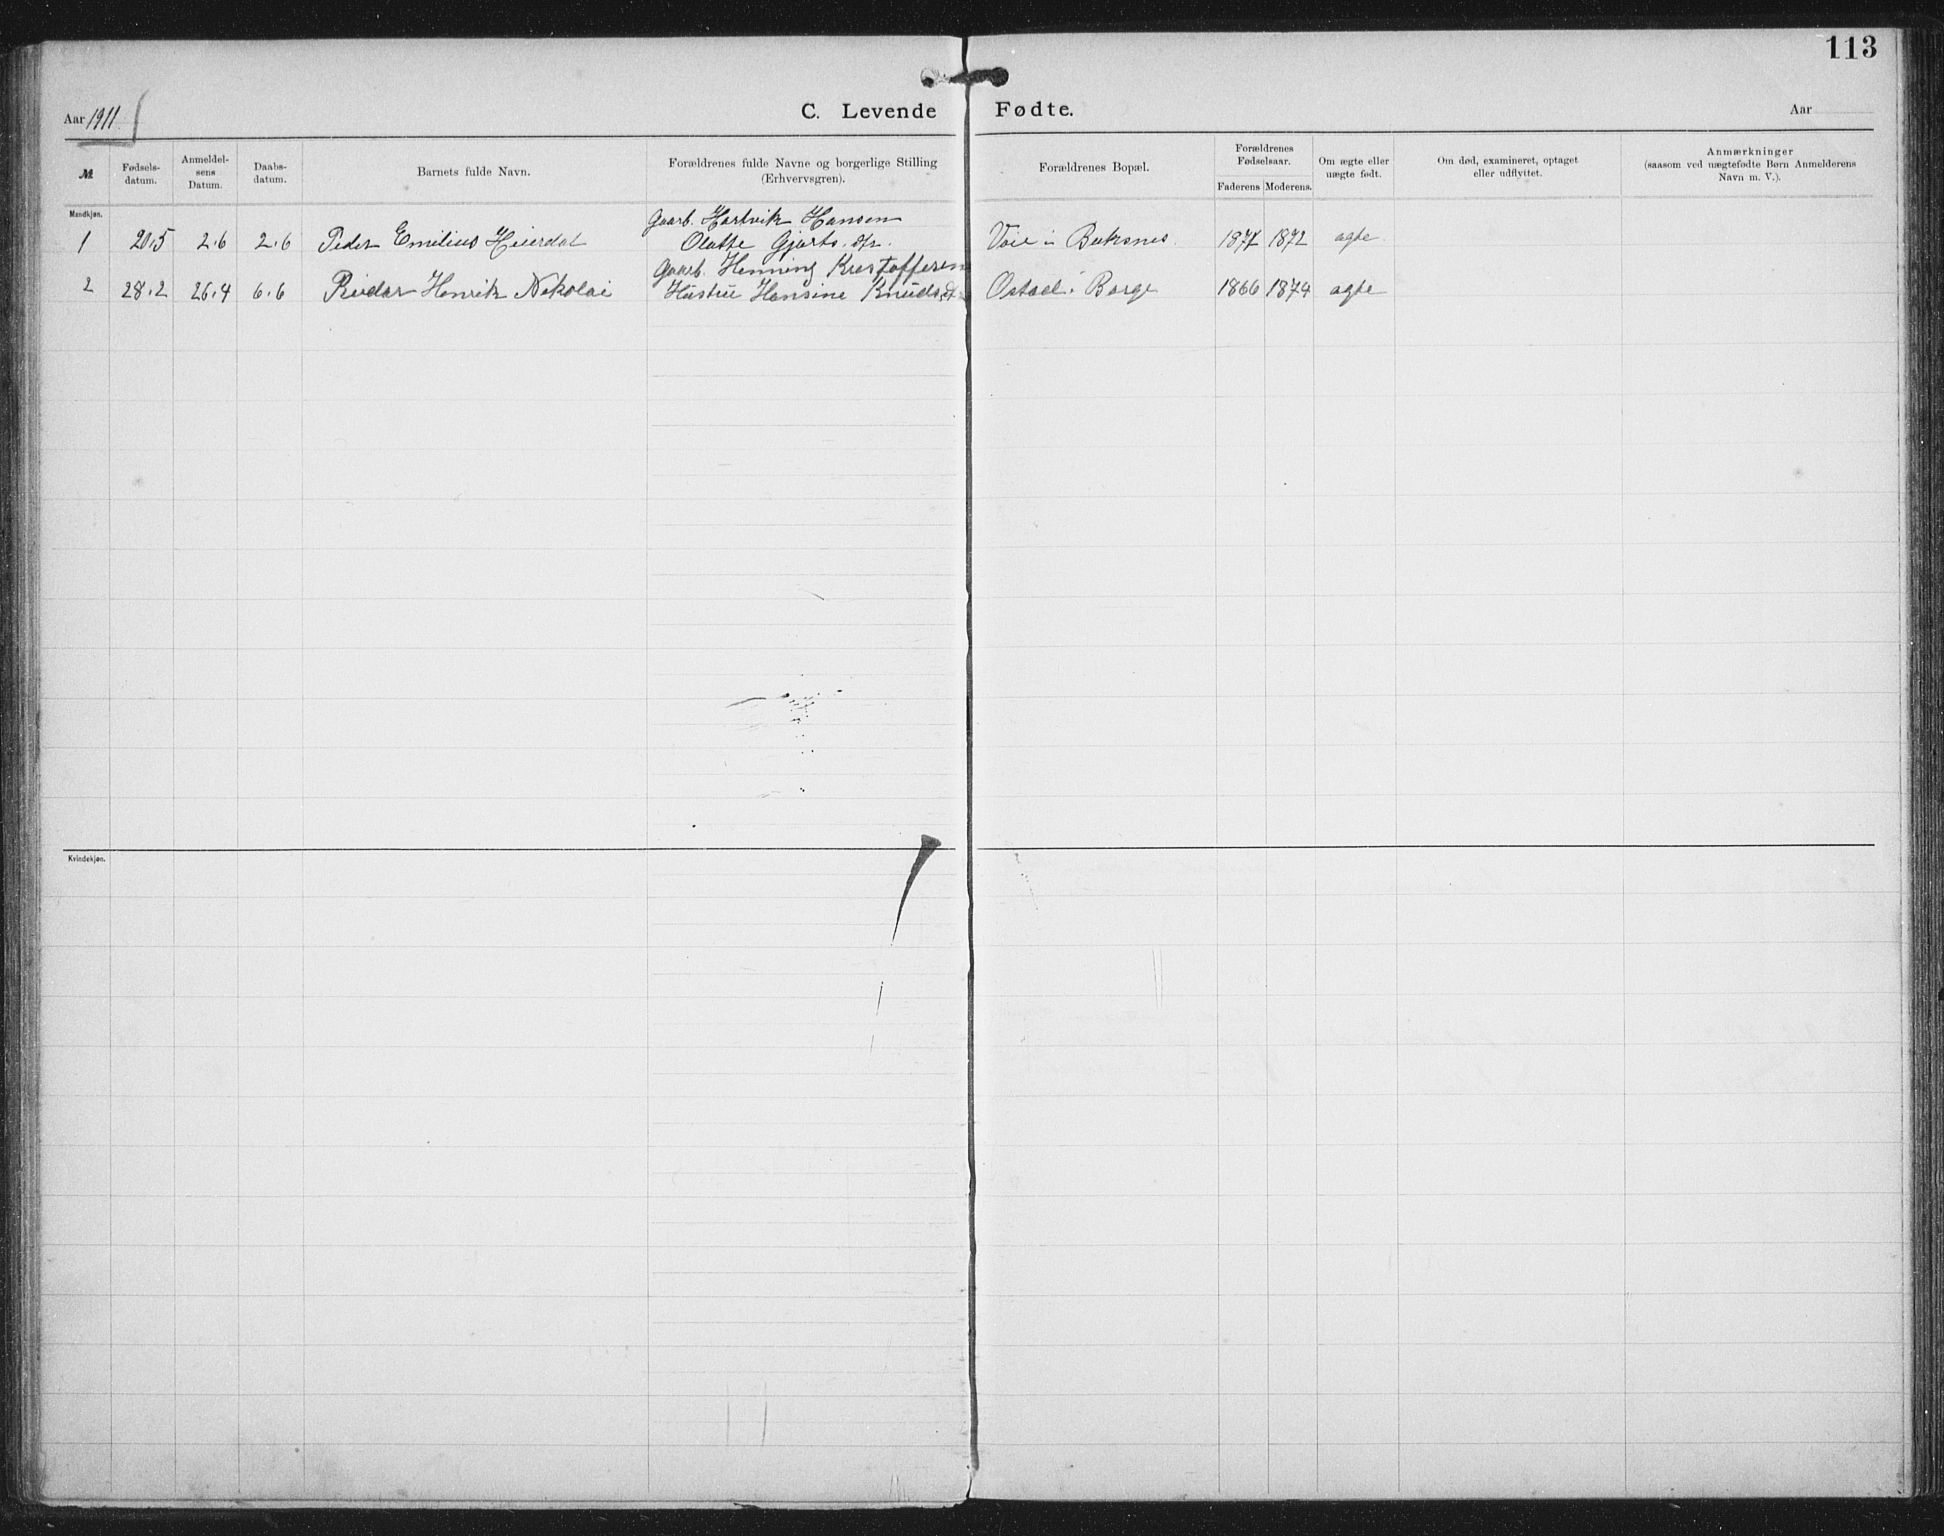 113
Aar 1911
C. Levende Fødte.
Aar
№
Fødsels-
datum.
Anmeldel-
sens
Datum.
Daabs-
datum.
Barnets fulde Navn.
Forældrenes fulde Navne og borgerlige Stilling
(Erhvervsgren).
Forældrenes Bopæl.
Forældrenes
Fødselsaar.
Faderens Moderens.
Om ægte eller
uægte født.
Om død, examineret, optaget
eller udflyttet.
Anmærkninger
(saasom ved uægtefødte Børn Anmelderens
Navn m. V.).
Mandkjøn.
Gaarb. Hartvik Hansen
1 20.5 2.6 2.6 Peder Emilius Heierdal Gjærts. dtr. i Buksnes 1872 ægte
Gaarb. Henning Kristoffersen
2 28.2 26.4 6.6 Reidar Henrik Nikolai Hustru Hansine Knuds.dt. i Borge 1866 1874 ægte
Kvindekjøn.